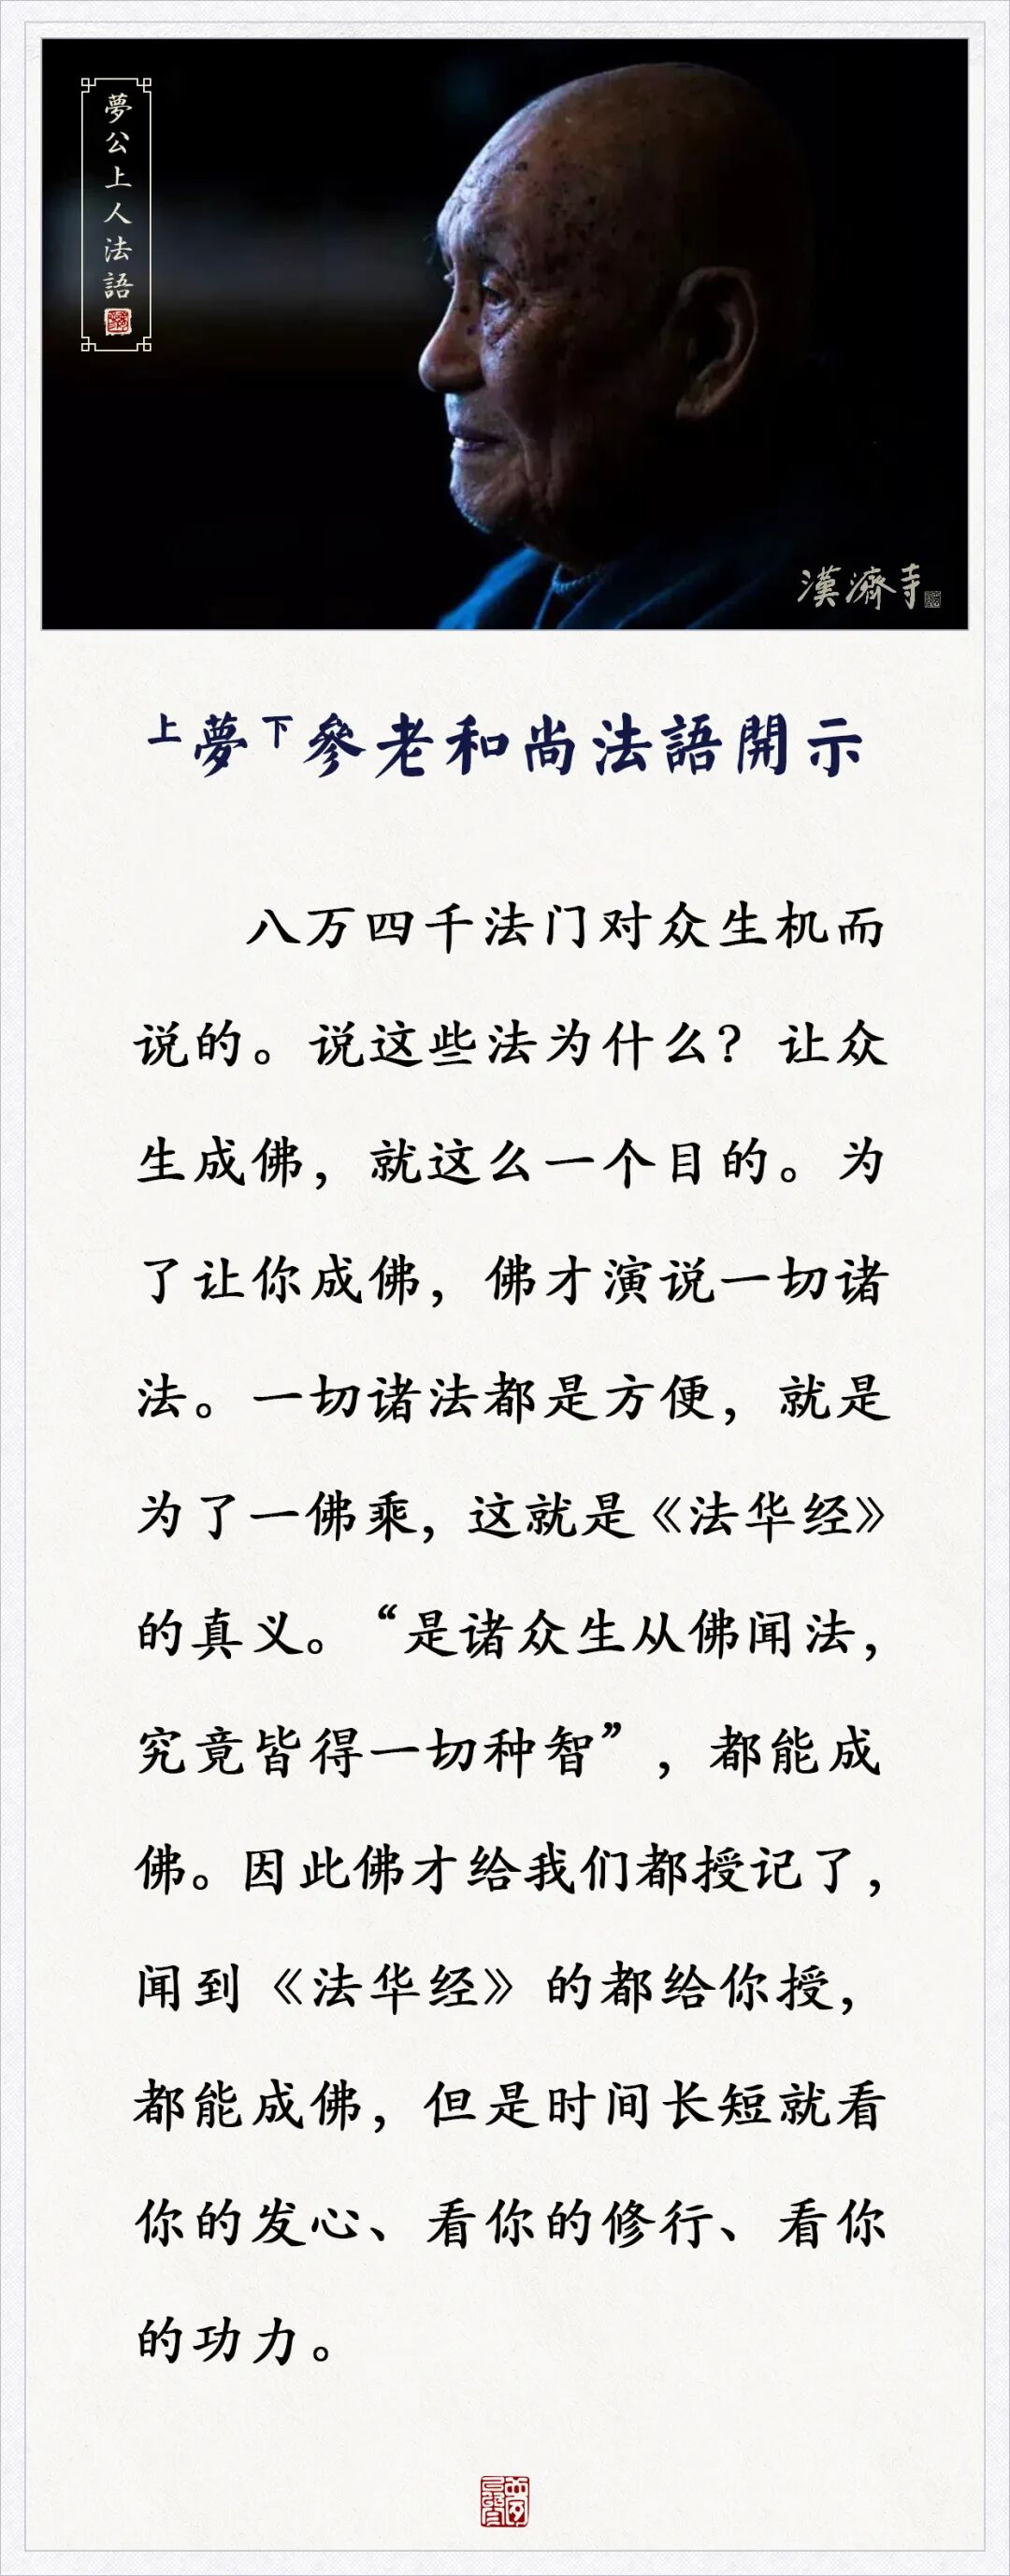 夢公上人法語
漢濟寺
上夢下參老和尚法語開示
八万四千法门对众生机而
说的。说这些法为什么？让众
生成佛，就这么一个目的。为
了让你成佛，佛才演说一切诸
法。一切诸法都是方便，就是
为了一佛乘，这就是《法华经》
的真义。“是诸众生从佛闻法，
究竟皆得一切种智”，都能成
佛。因此佛才给我们都授记了，
闻到《法华经》的都给你授，
都能成佛，但是时间长短就看
你的发心、看你的修行、看你
的功力。